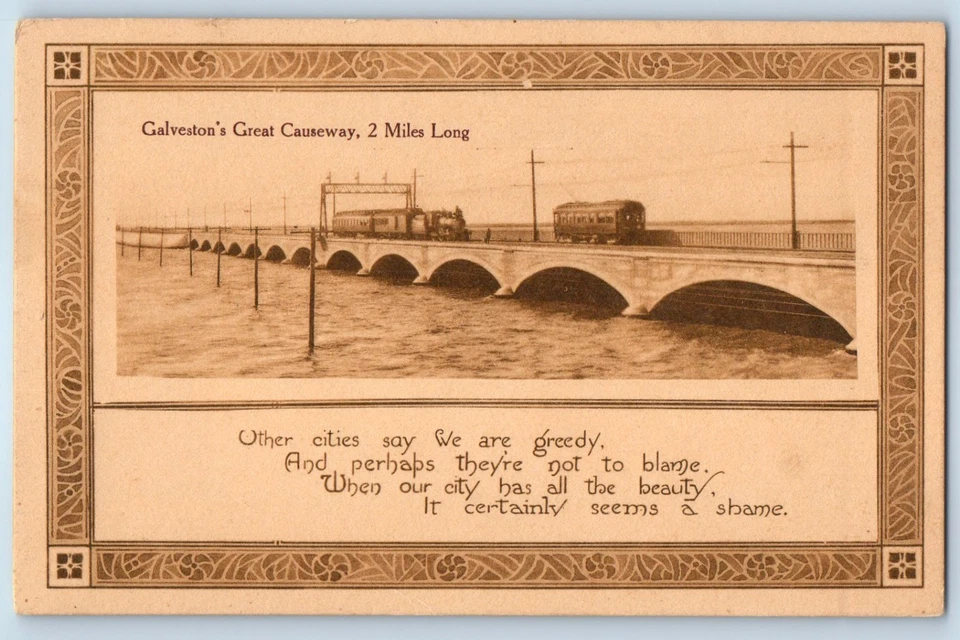 Galveston's Great Causeway, 2 Miles Long
Other cities say We are greedy,
And perhaps they're not to blame.
When our city has all the beauty,
It certainly seems a shame.